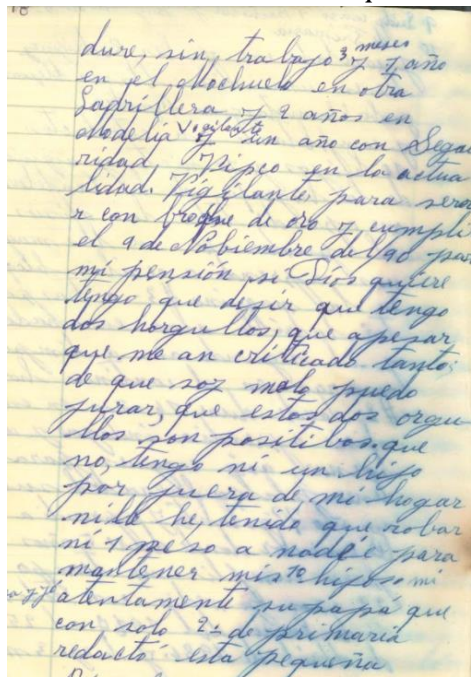 18
dure, sin, trabajo 3 meses y 1 año
en el Mochuelo en otra
Ladrillera y 2 años en
Modelia Vigilante y un año con Segu
ridad, Vipco en la actua
lidad. Vigilante, para serra
r con broche de oro y cumpli
el 9 de Nobiembre del 90 para
mi pensión, si Dios quiere
tengo que desir que tengo
dos horgullos, que apesar
que me an criticado tanto:
de que soy malo puedo
jurar, que estos dos orgu
llos son positibos. que
no, tengo ni un hijo
por, fuera de mi hogar
ni le he, tenido que robar
ni 1 peso a nadie para
mantener mis 10 hijos mi
atentamente su papá que
con solo 2º de primaria
redactó esta pequeña